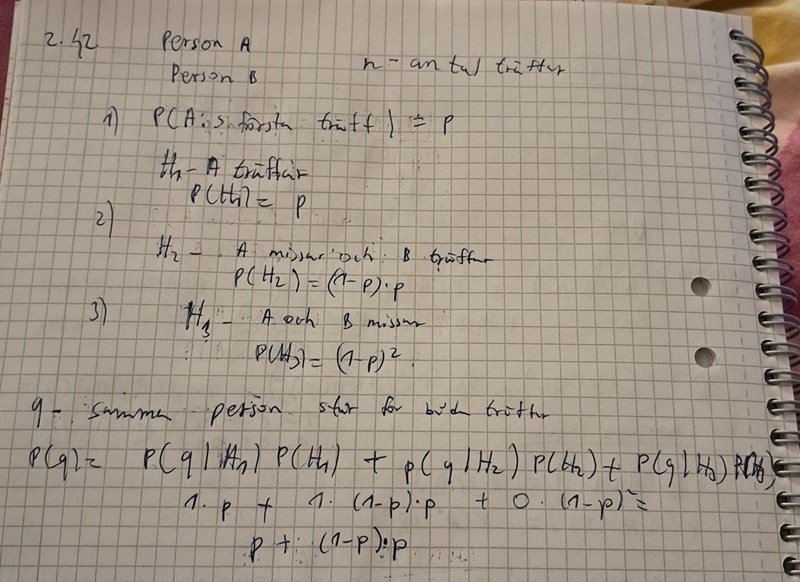 2.42 Person A
Person B n - antal träffar
1) P(A:s första träff) = p
H₁ - A träffar
P(H₁) = p
2)
H₂ - A missar och B träffar
P(H₂) = (1-p)·p
3) H₃ - A och B missar
P(H₃) = (1-p)².
q - samma person står för båda träffar
P(q) = P(q|H₁) P(H₁) + P(q|H₂) P(H₂) + P(q|H₃) P(H₃)
1·p + 1·(1-p)·p + 0·(1-p)² =
p + (1-p)·p